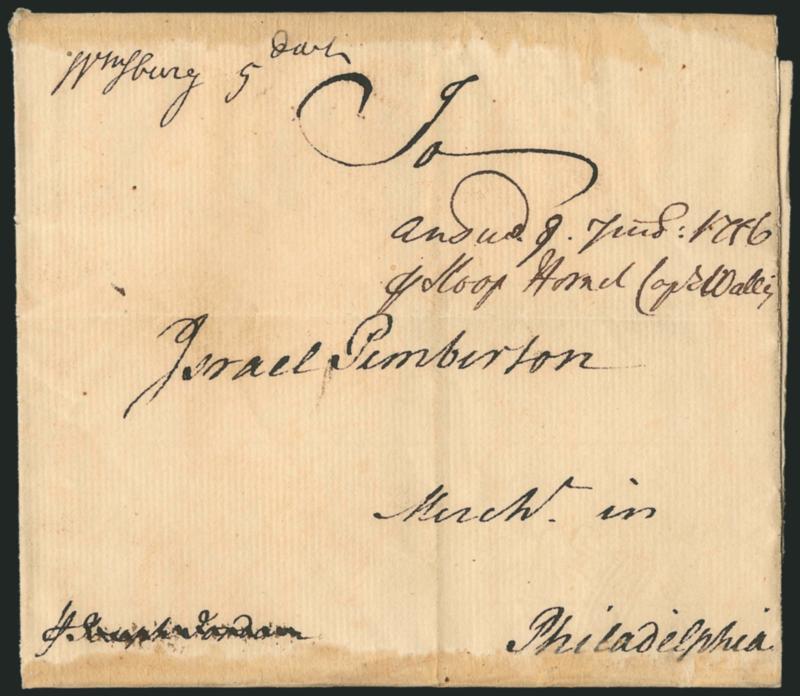 Wmsburg 5 dwt
To
Answd. 9. 7mo: 1746
⅌ Sloop Hornet Capt Wallis
Israel Pemberton
Mercht. in
Philadelphia
⅌ Joseph Jordan